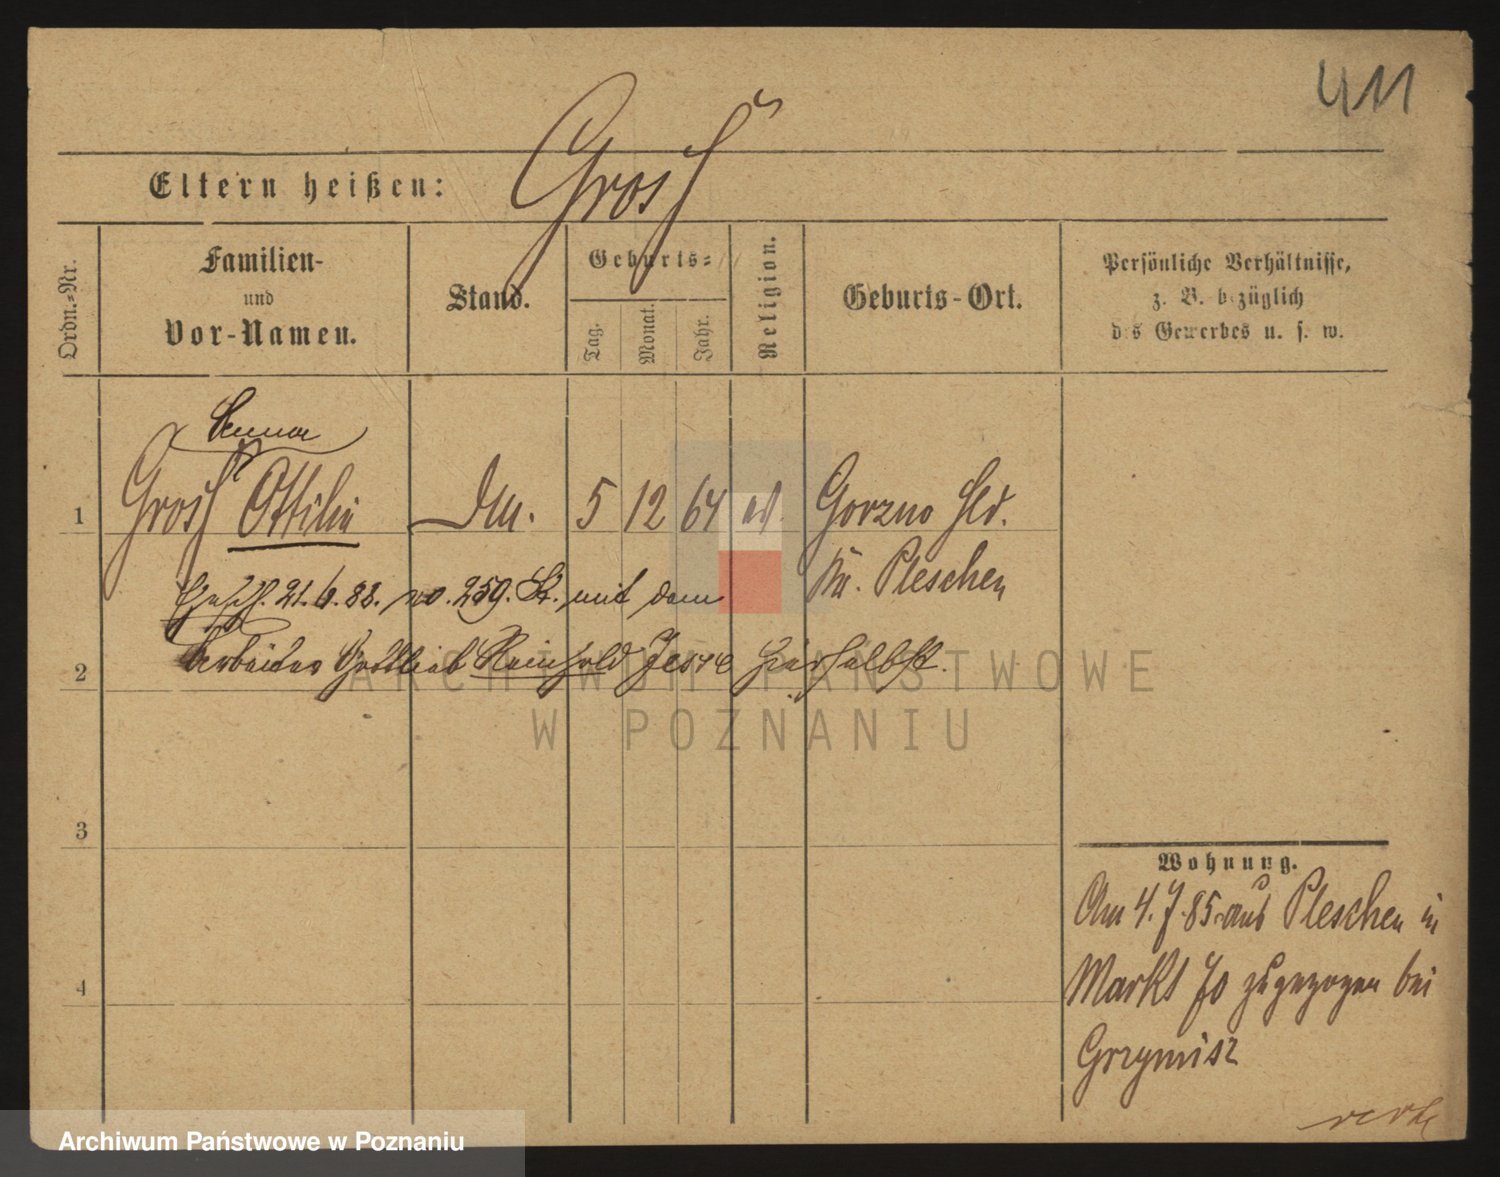 411
Eltern heißen: Grosß
Ordn.-Nr.
Familien-
und
Vor-Namen.
Stand.
Geburts-
Tag.
Monat.
Jahr.
Religion.
Geburts-Ort.
Persönliche Verhältnisse,
z. B. bezüglich
des Gewerbes u. s. w.
1 Ottilie 5 12 64 Gorzno Hld.
Kr. Pleschen
21. 6. 88. no. 259. St. mit dem
2 Arbeiter Gottlieb Reinhold hierselbst.
3
4
Wohnung.
Am 4. 7. 85. aus Pleschen in
Markt 70 zugezogen bei
Grzymisz
ARCHIWUM PAŃSTWOWE
W POZNANIU
Archiwum Państwowe w Poznaniu